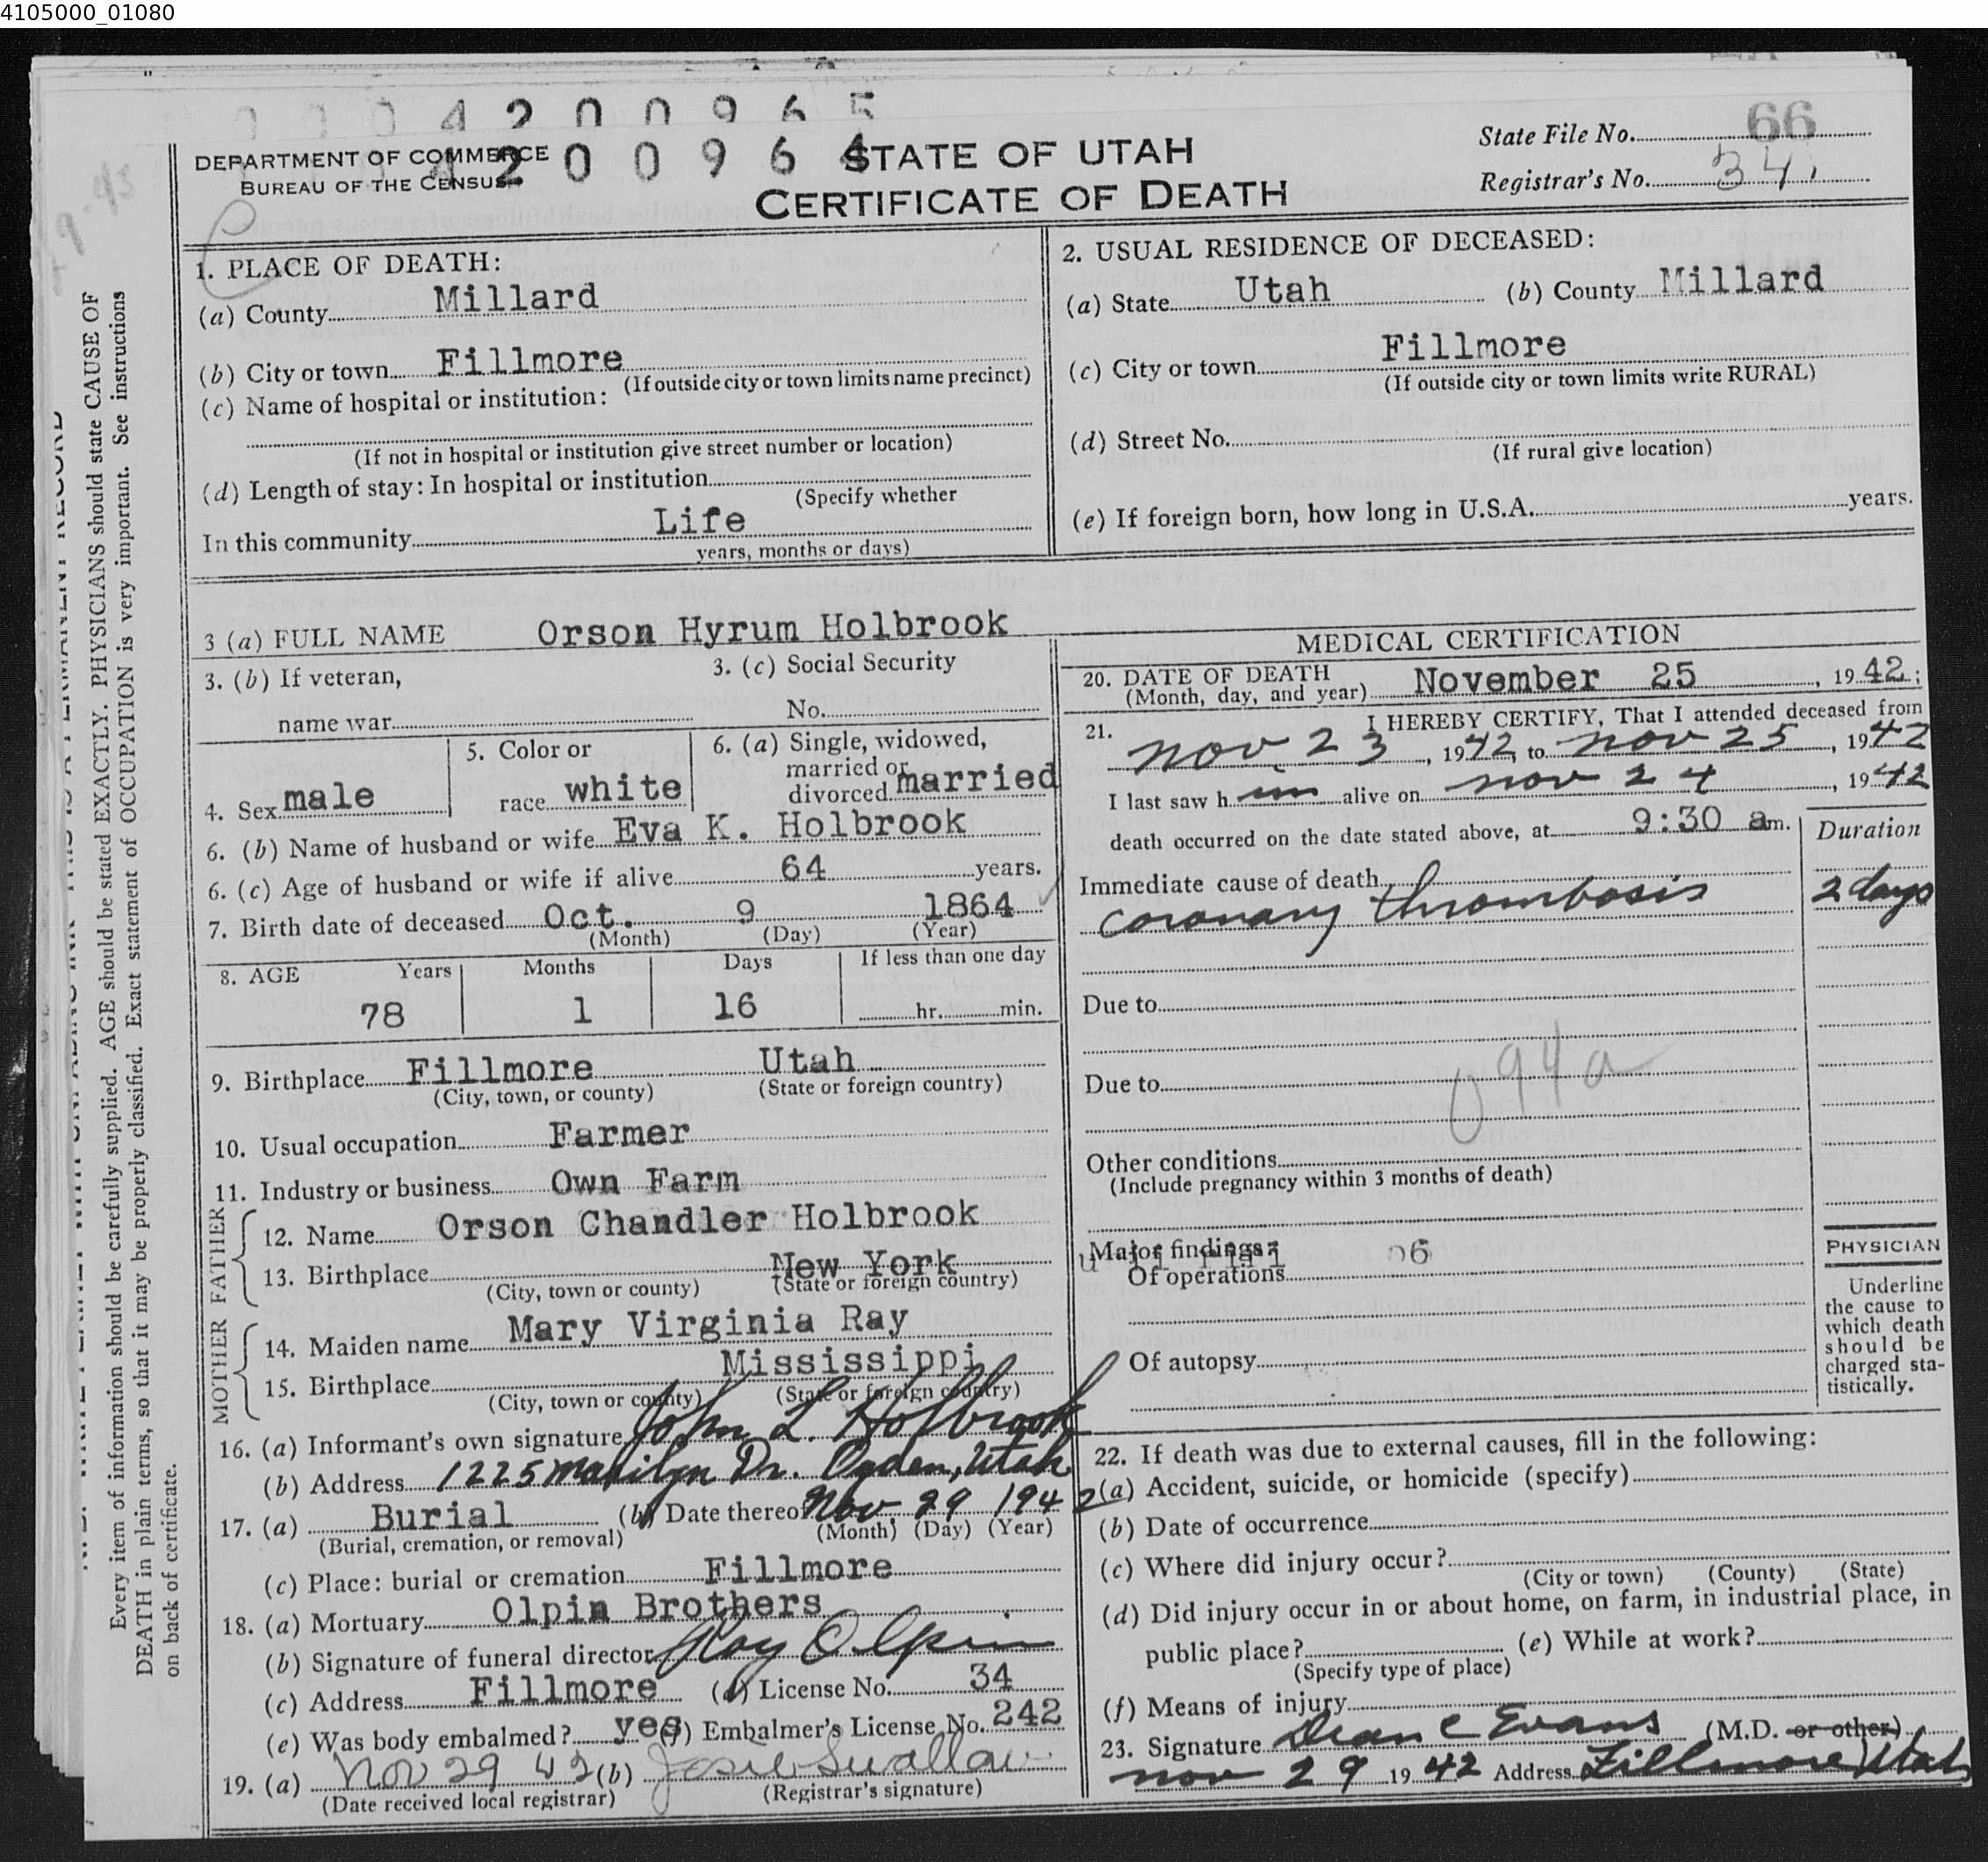 4105000_01080
4 2 0 0 9 6 5
DEPARTMENT OF COMMERCE
BUREAU OF THE CENSUS
4 2 0 0 9 6 4
STATE OF UTAH
CERTIFICATE OF DEATH
State File No. 66
Registrar's No. 34
1. PLACE OF DEATH:
(a) County Millard
(b) City or town Fillmore
(If outside city or town limits name precinct)
(c) Name of hospital or institution:
(If not in hospital or institution give street number or location)
(d) Length of stay: In hospital or institution
(Specify whether
In this community Life
years, months or days)
2. USUAL RESIDENCE OF DECEASED:
(a) State Utah (b) County Millard
(c) City or town Fillmore
(If outside city or town limits write RURAL)
(d) Street No.
(If rural give location)
(e) If foreign born, how long in U.S.A. years.
3 (a) FULL NAME Orson Hyrum Holbrook
3. (b) If veteran,
name war
3. (c) Social Security
No.
4. Sex male
5. Color or
race white
6. (a) Single, widowed,
married or
divorced married
6. (b) Name of husband or wife Eva K. Holbrook
6. (c) Age of husband or wife if alive 64 years.
7. Birth date of deceased Oct. 9 1864
(Month) (Day) (Year)
8. AGE Years Months Days If less than one day
78 1 16 hr. min.
9. Birthplace Fillmore Utah
(City, town, or county) (State or foreign country)
10. Usual occupation Farmer
11. Industry or business Own Farm
FATHER
12. Name Orson Chandler Holbrook
13. Birthplace New York
(City, town or county) (State or foreign country)
MOTHER
14. Maiden name Mary Virginia Ray
15. Birthplace Mississippi
(City, town or county) (State or foreign country)
16. (a) Informant's own signature John L. Holbrook
(b) Address 1225 Marilyn Dr. Ogden, Utah
17. (a) Burial (b) Date thereof Nov. 29 1942
(Burial, cremation, or removal) (Month) (Day) (Year)
(c) Place: burial or cremation Fillmore
18. (a) Mortuary Olpin Brothers
(b) Signature of funeral director Roy Olpin
(c) Address Fillmore (d) License No. 34
(e) Was body embalmed? yes (f) Embalmer's License No. 242
19. (a) Nov 29 42 (b) Josie Swallow
(Date received local registrar) (Registrar's signature)
MEDICAL CERTIFICATION
20. DATE OF DEATH
(Month, day, and year) November 25, 1942;
21. I HEREBY CERTIFY, That I attended deceased from
Nov. 23, 1942, to Nov 25, 1942
I last saw him alive on Nov 24, 1942
death occurred on the date stated above, at 9:30 am.
Duration
Immediate cause of death
coronary thrombosis 2 days
Due to
094a
Due to
Other conditions
(Include pregnancy within 3 months of death)
Major findings:
06
Of operations
Of autopsy
PHYSICIAN
Underline
the cause to
which death
should be
charged sta-
tistically.
22. If death was due to external causes, fill in the following:
(a) Accident, suicide, or homicide (specify)
(b) Date of occurrence
(c) Where did injury occur?
(City or town) (County) (State)
(d) Did injury occur in or about home, on farm, in industrial place, in
public place? (e) While at work?
(Specify type of place)
(f) Means of injury
23. Signature Dean C Evans (M.D. or other)
Nov 29 1942 Address Fillmore Utah
Every item of information should be carefully supplied. AGE should be stated EXACTLY. PHYSICIANS should state CAUSE OF
DEATH in plain terms, so that it may be properly classified. Exact statement of OCCUPATION is very important. See instructions
on back of certificate.